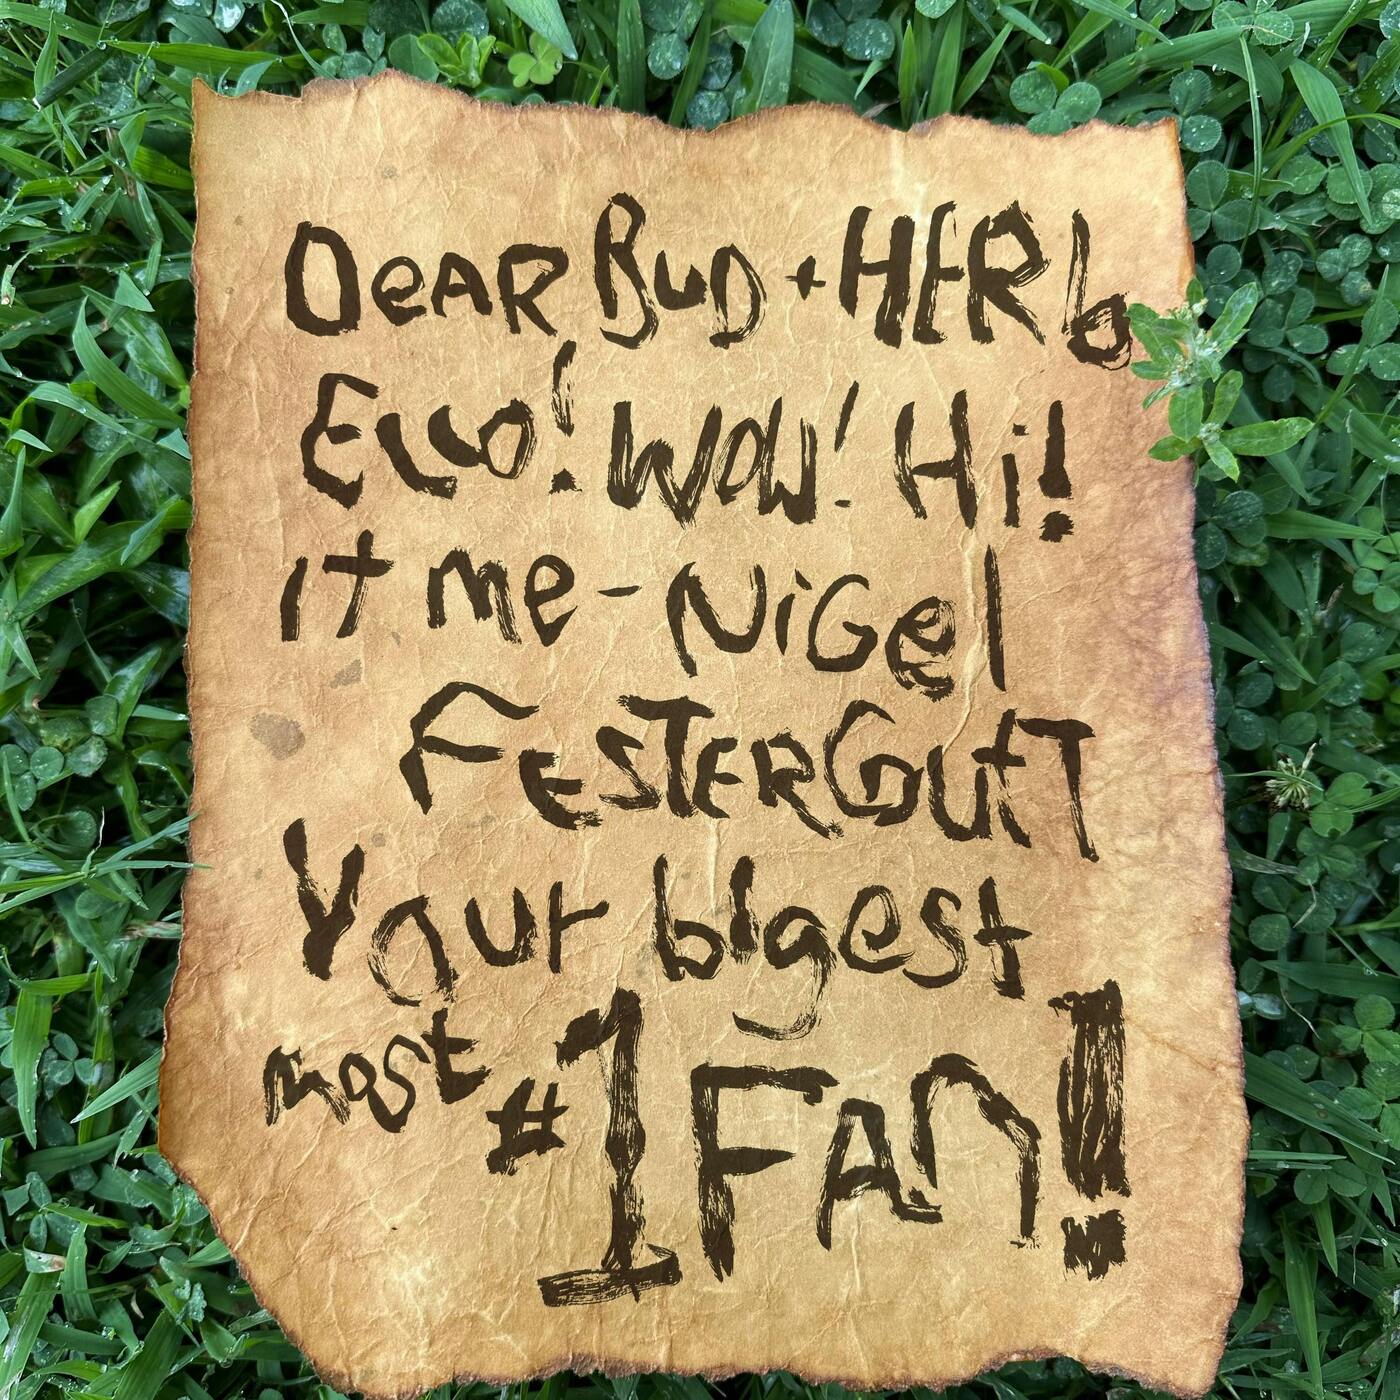 DeAR BuD + HERb
Ello! WOW! Hi!
it me - NiGel
FESTERGUtT
Your bigest
most #1 FAn!